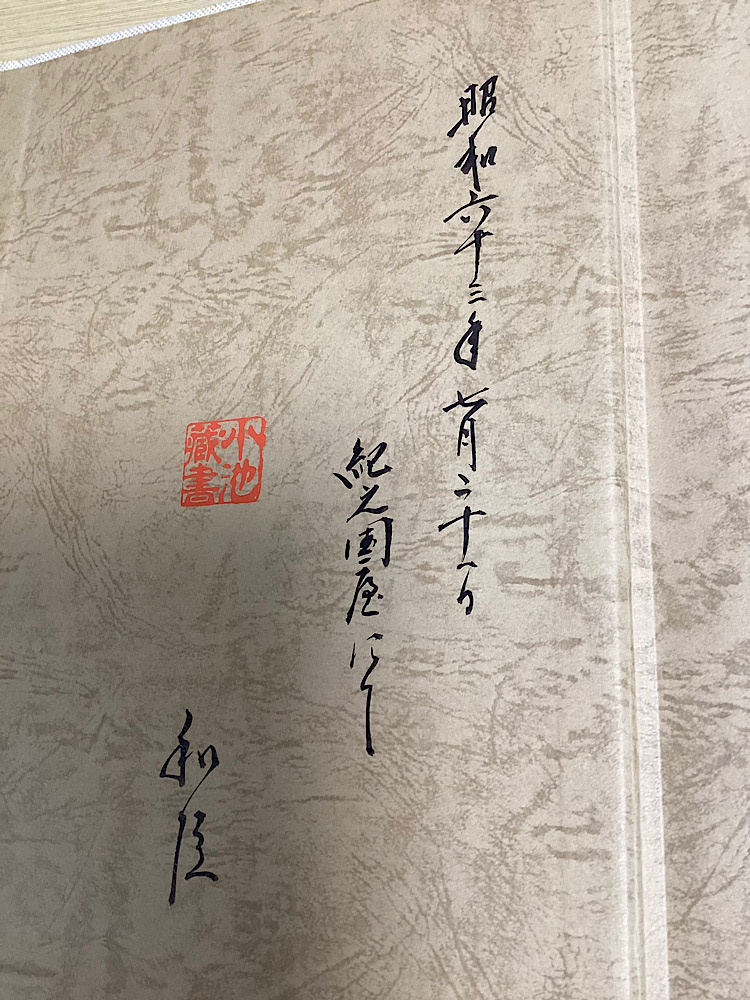 昭和六十三年七月二十一日
紀之国屋にて
小池
藏書
和臣